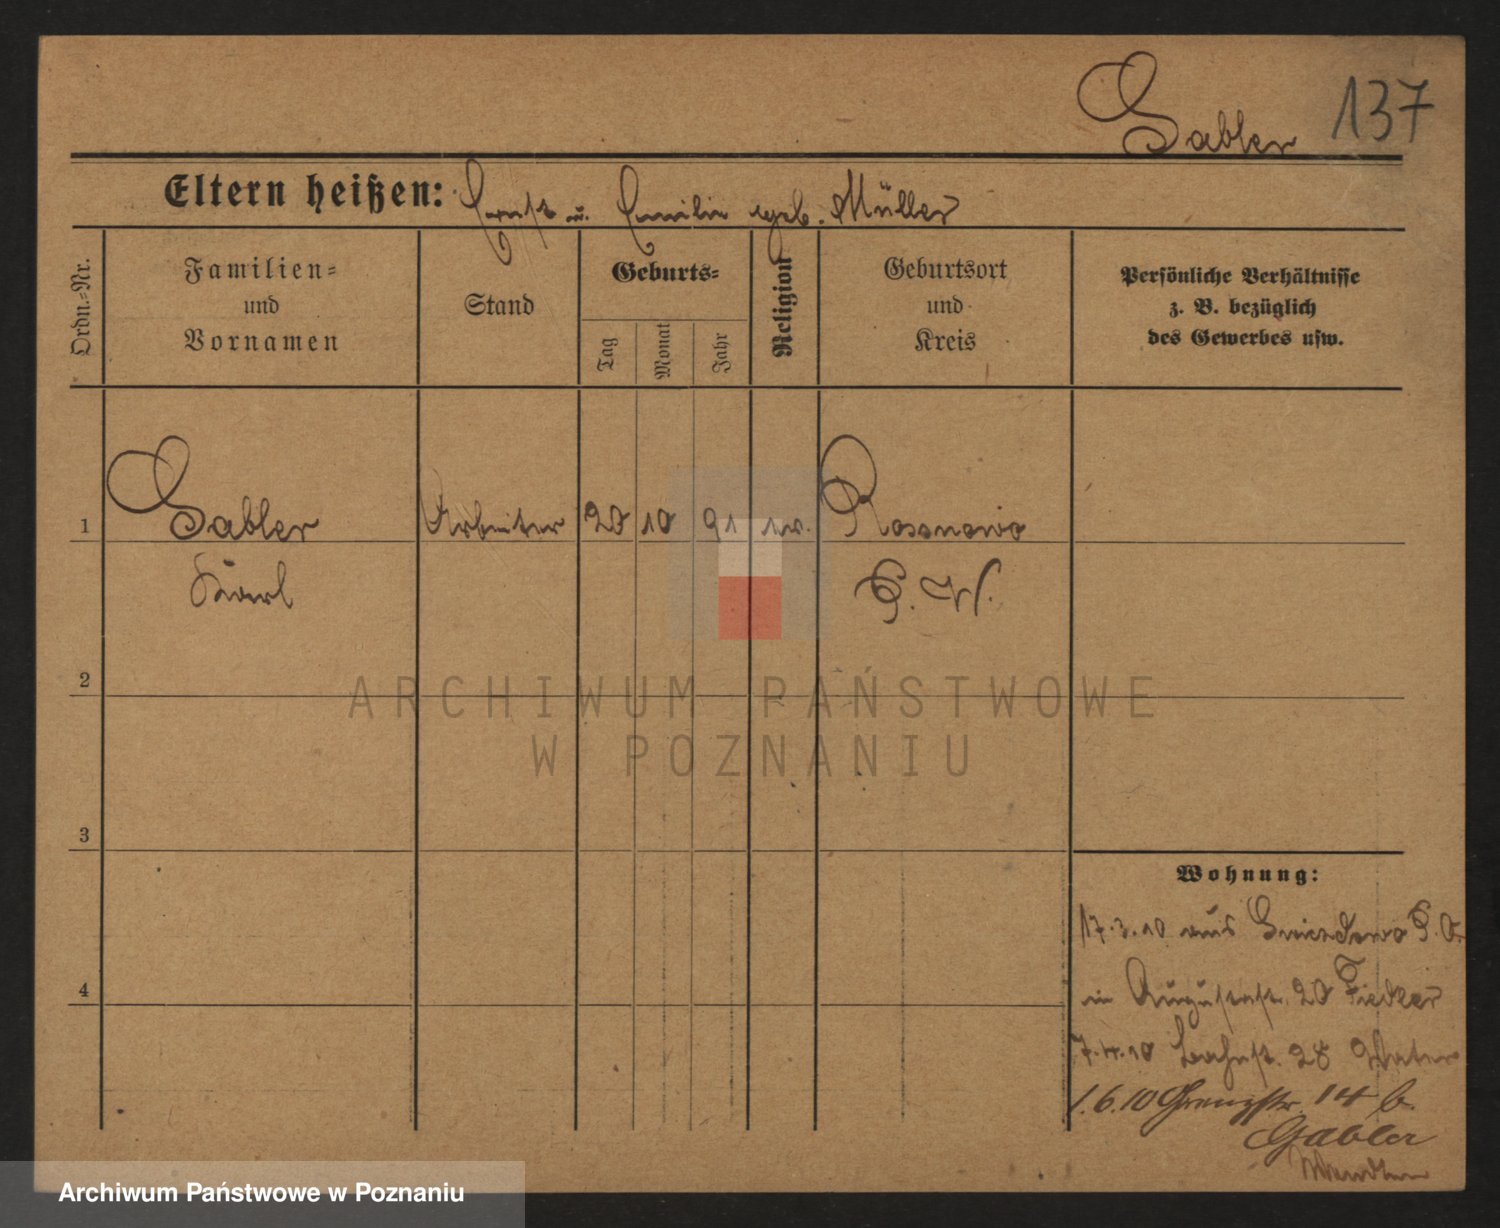 Gabler 137
Eltern heißen: Ernst u. Emilie geb. Müller
Ordn.-Nr.
Familien- und Vornamen
Stand
Geburts-
Tag
Monat
Jahr
Religion
Geburtsort und Kreis
Persönliche Verhältnisse
z. B. bezüglich
des Gewerbes usw.
1 Gabler Arbeiter 20 10 91 ev. Rosnowo
Karl P. W.
2
ARCHIWUM PAŃSTWOWE
W POZNANIU
3
4
Wohnung:
17.3.10 aus P. O.
in Augustastr. 20 Fiedler
7.4.10 28 Vater
1.6.10 Grenzstr. 14 b.
Gabler
Archiwum Państwowe w Poznaniu